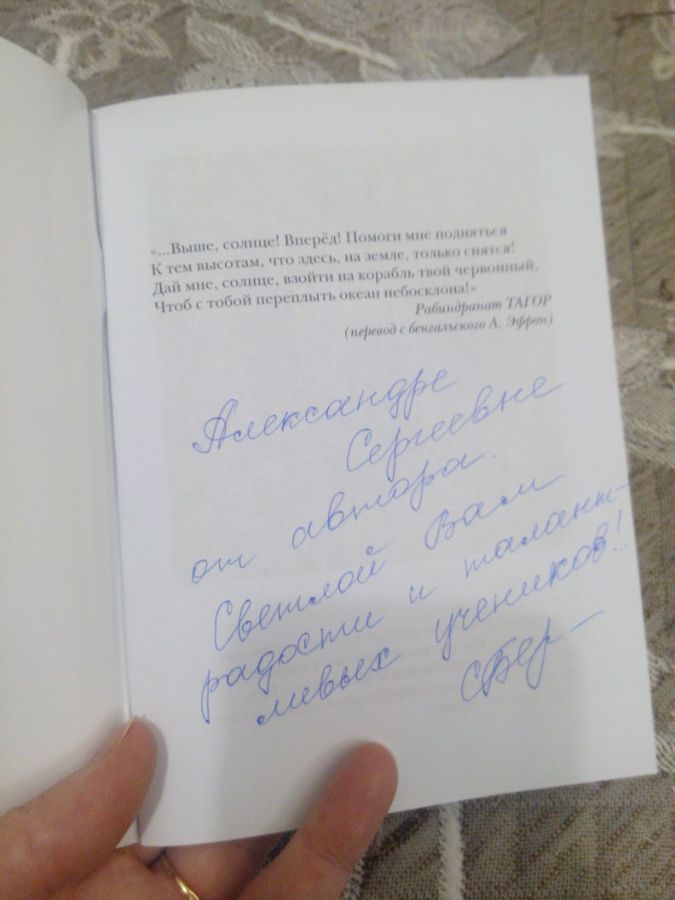 «...Выше, солнце! Вперёд! Помоги мне подняться
К тем высотам, что здесь, на земле, только снятся!
Дай мне, солнце, взойти на корабль твой червонный,
Чтоб с тобой переплыть океан небосклона!»
Рабиндранат ТАГОР
(перевод с бенгальского А. Эфрон)
Александре
Сергеевне
от автора.
Светлой Вам
радости и талант-
ливых учеников!